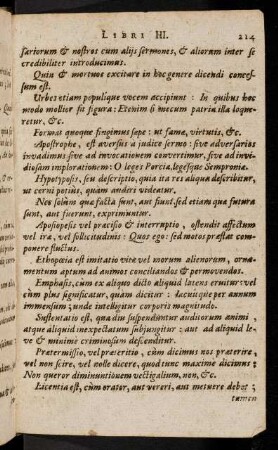 LIBRI III. 214
sariorum & nostros cum alijs sermones, & aliorum inter se
credibiliter introducimus.
Quin & mortuos excitare in hoc genere dicendi conces-
sum est.
Vrbes etiam populique vocem accipiunt: In quibus hoc
modo mollior fit figura: Etenim si mecum patria illa loque-
retur, &c.
Formas quoque fingimus sæpe: ut famæ, virtutis, &c.
Apostrophe, est aversus à judice sermo: sive adversarios
invadimus sive ad invocationem convertimur, sive ad invi-
diosam implorationem: O leges Porcia, legesque Semproniæ.
Hypotyposis, seu descriptio, quia ea res aliqua describitur,
ut cerni potiùs, quàm audiri videatur.
Nec solùm quæ facta sunt, aut fiunt, sed etiam quæ futura
sunt, aut fuerint, exprimuntur.
Aposiopesis vel præcisio & interruptio, ostendit affectum
vel iræ, vel sollicitudinis: Quos ego: sed motos præstat com-
ponere fluctus.
Ethopœia est imitatio vitæ vel morum alienorum, orna-
mentum aptum ad animos conciliandos & permovendos.
Emphasis, cùm ex aliquo dicto aliquid latens eruitur: vel
cùm plus significatur, quàm dicitur: Iacuitque per annum
immensum; unde intelligitur corporis magnitudo.
Sustentatio est, quæ diu suspenduntur auditorum animi,
atque aliquid inexpectatum subjungitur: aut ad aliquid le-
ve & minimè criminosum descenditur.
Prætermissio, vel præteritio, cùm dicimus nos præterire,
vel non scire, vel nolle dicere, quod tunc maximè dicimus:
Non queror diminutionem vectigalium, non, &c.
Licentia est, cùm orator, aut vereri, aut metuere debet;
tamen